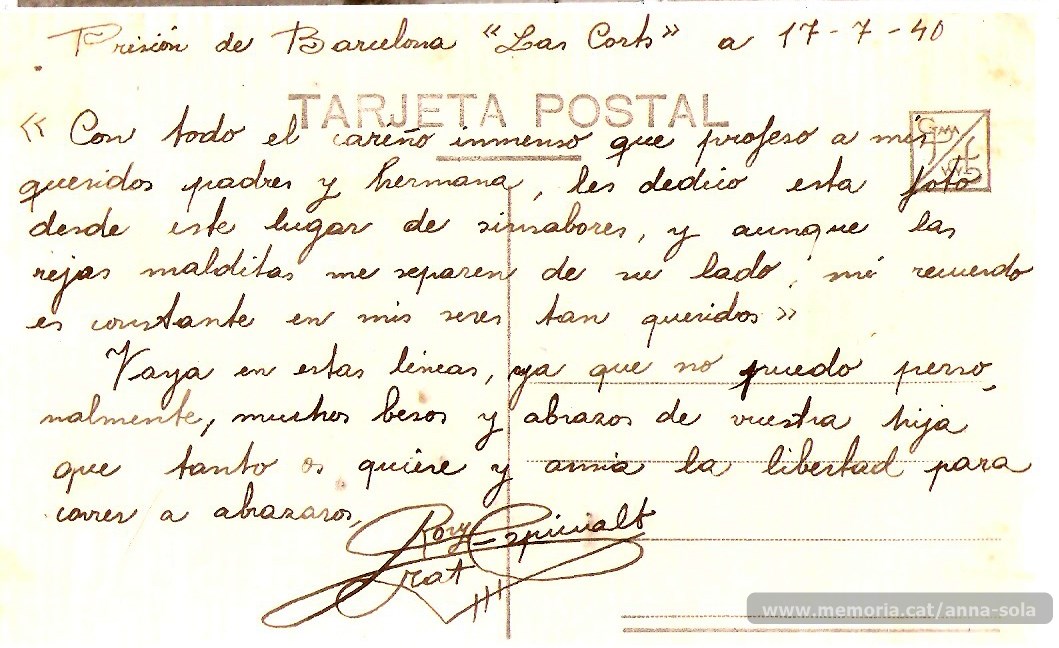 Prisión de Barcelona "Las Corts" a 17-7-40
TARJETA POSTAL
« Con todo el cariño inmenso que profeso a mis
queridos padres y hermana, les dedico esta foto
desde este lugar de sinsabores, y aunque las
rejas malditas me separen de su lado, mi recuerdo
es constante en mis seres tan queridos »
Vaya en estas líneas, ya que no puedo perso
nalmente, muchos besos y abrazos de vuestra hija
que tanto os quiere y ansia la libertad para
correr a abrazaros,
www.memoria.cat/anna-sola